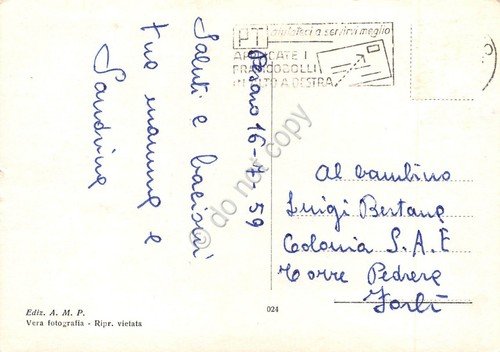 Pesaro 16-7-59
Saluti e bacioni
tua mamma e
Sandrina
PT
aiutateci a servirvi meglio
APPLICATE I
FRANCOBOLLI
IN ALTO A DESTRA
Al bambino
Luigi Bertana
Colonia S.A.E
Torre Pedrera
Forlì
Ediz. A. M. P.
Vera fotografia - Ripr. vietata
024
@ do not copy